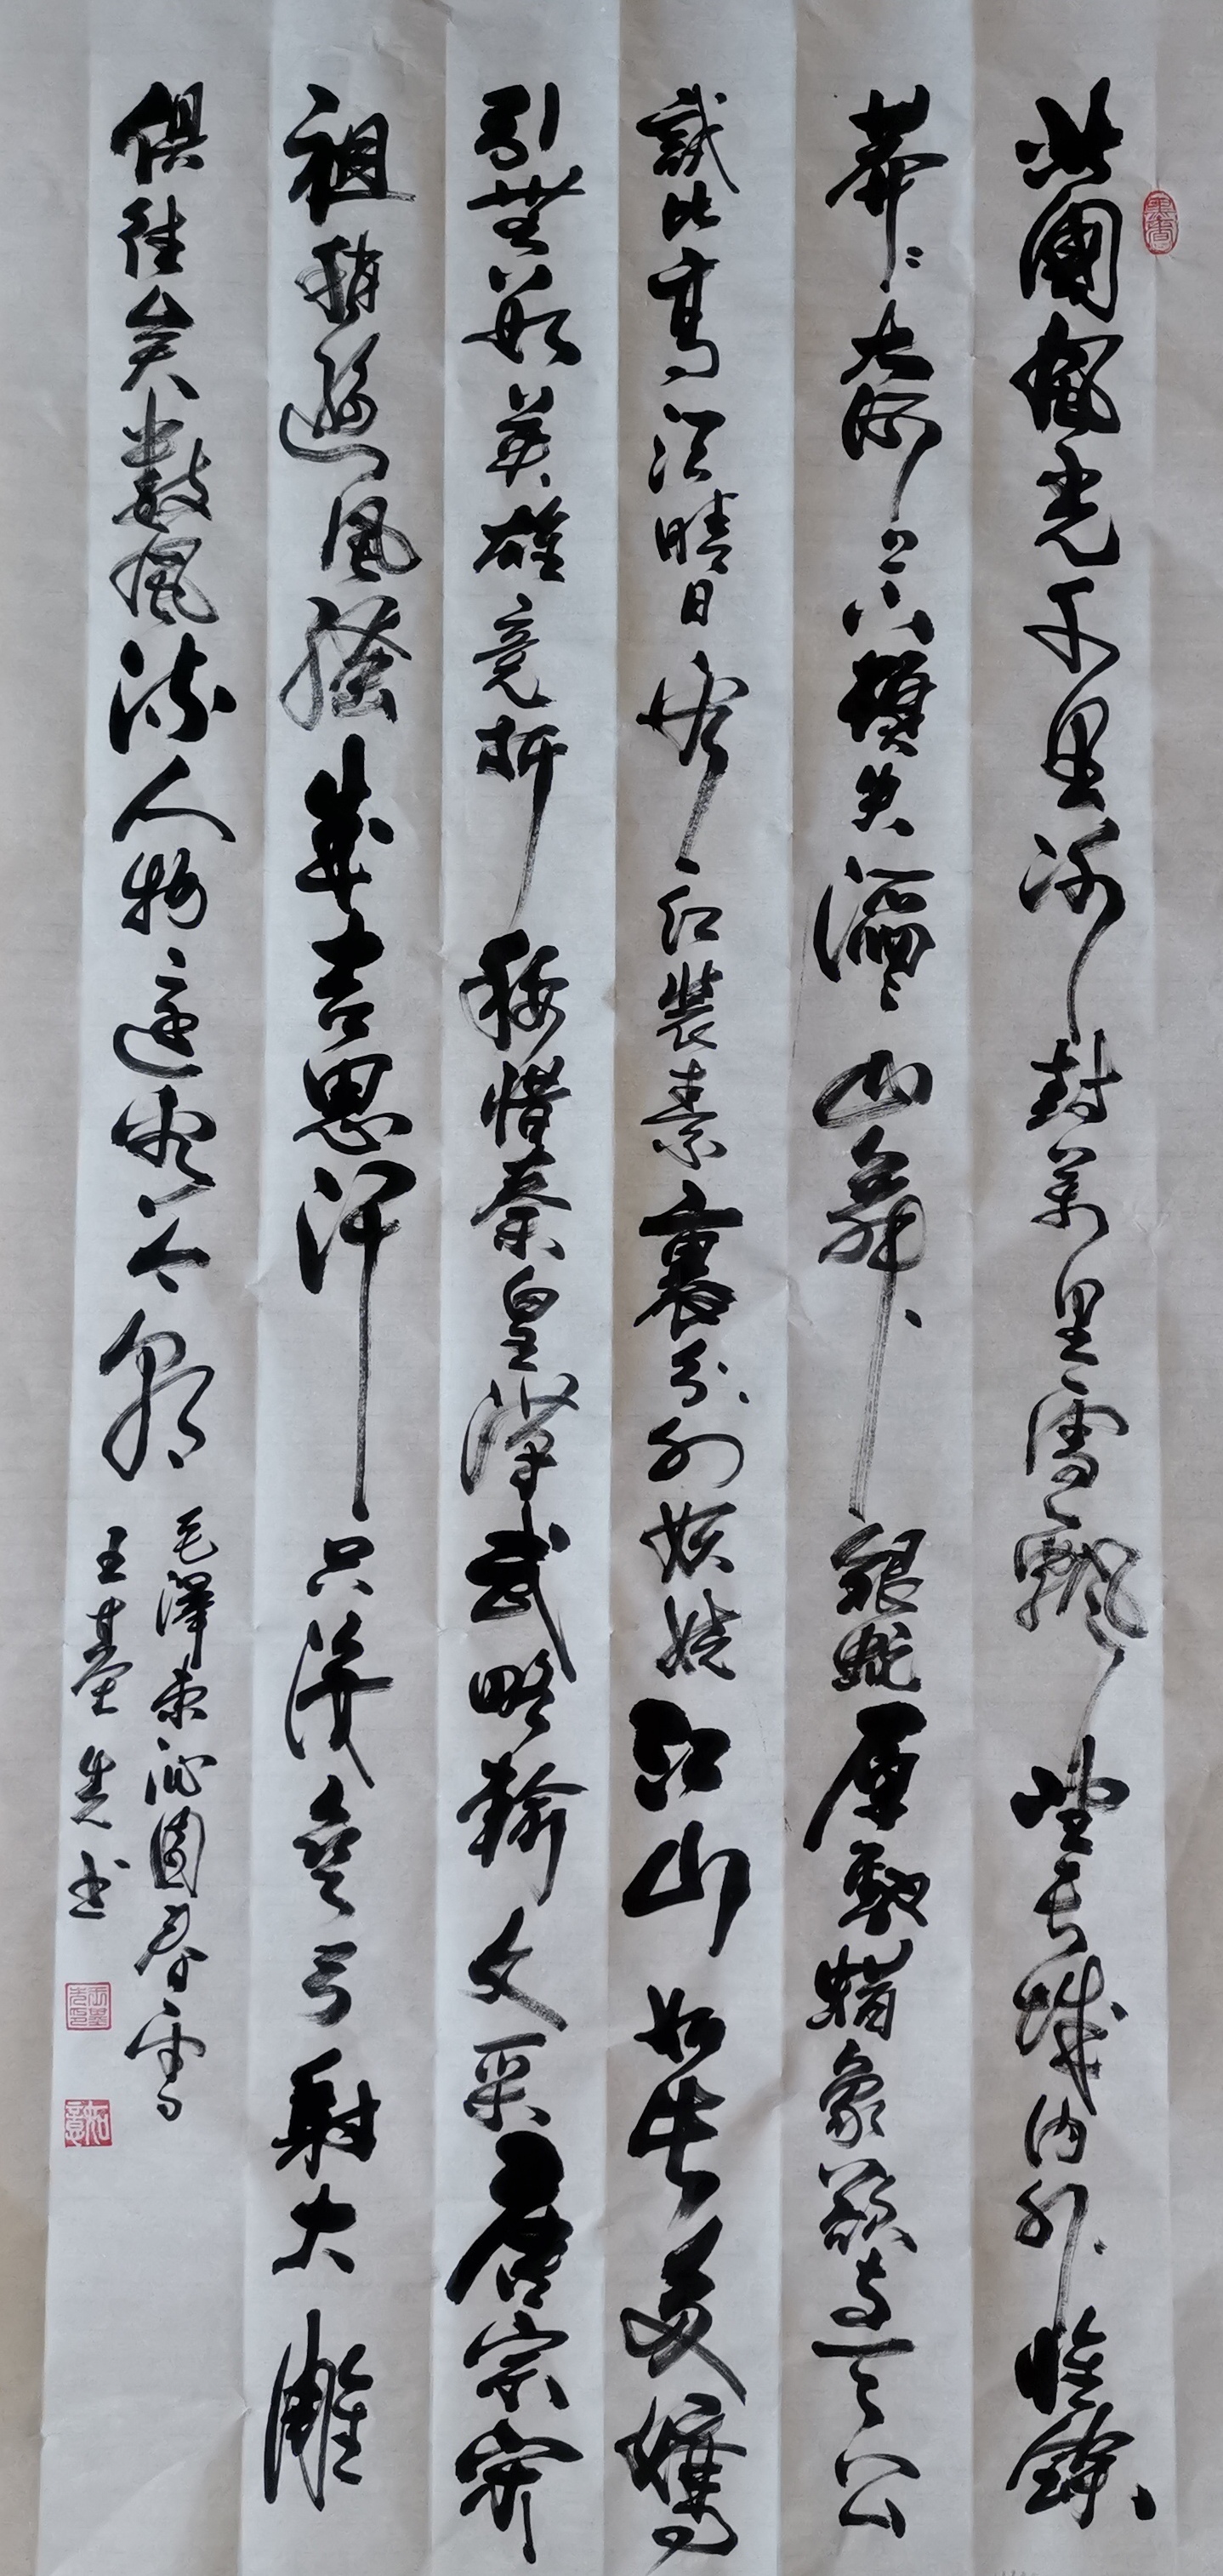 北國風光千里冰封萬里雪飄望長城内外惟餘
莽々大河上下頓失滔々山舞銀蛇原馳蠟象欲與天公
試比高須晴日看紅裝素裹分外妖嬈江山如此多嬌
引無數英雄競折腰惜秦皇漢武略輸文采唐宗宋
祖稍遜風騷成吉思汗只識彎弓射大雕
俱往矣數風流人物還看今朝
毛澤東沁園春雪
王基先书